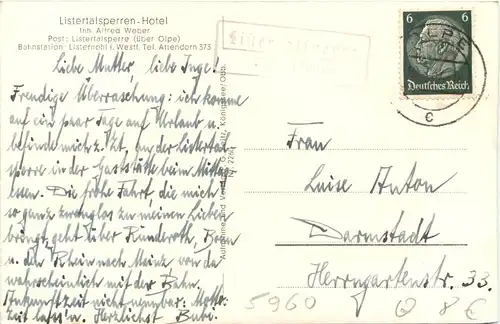 Listertalsperren-Hotel
Inh. Alfred Weber
Post: Listertalsperre (über Olpe)
Bahnstation: Listernohl i. Westf. Tel. Attendorn 373
Liebe Mutter, liebe Inge!
Freudige Überraschung: ich komme
auf ein paar Tage auf Urlaub u.
befinde mich z. Zt. an der Listertal
sperre in der Gaststätte beim Mittag
essen. Die frohe Fahrt, die mich
so ganz zwanglos zu meinen Lieben
bringt geht über Ründeroth, Bonn
u. den Rhein nach Mainz von da
wahrscheinlich mit der Bahn.
Ankunftzeit nicht nennbar: Motto:
Zeit lass'n. Herzlichst Bubi.
6 6
Deutsches Reich
OLPE
c
Frau
Luise Anton
Darmstadt
Herrngartenstr. 33.
5960 8 €